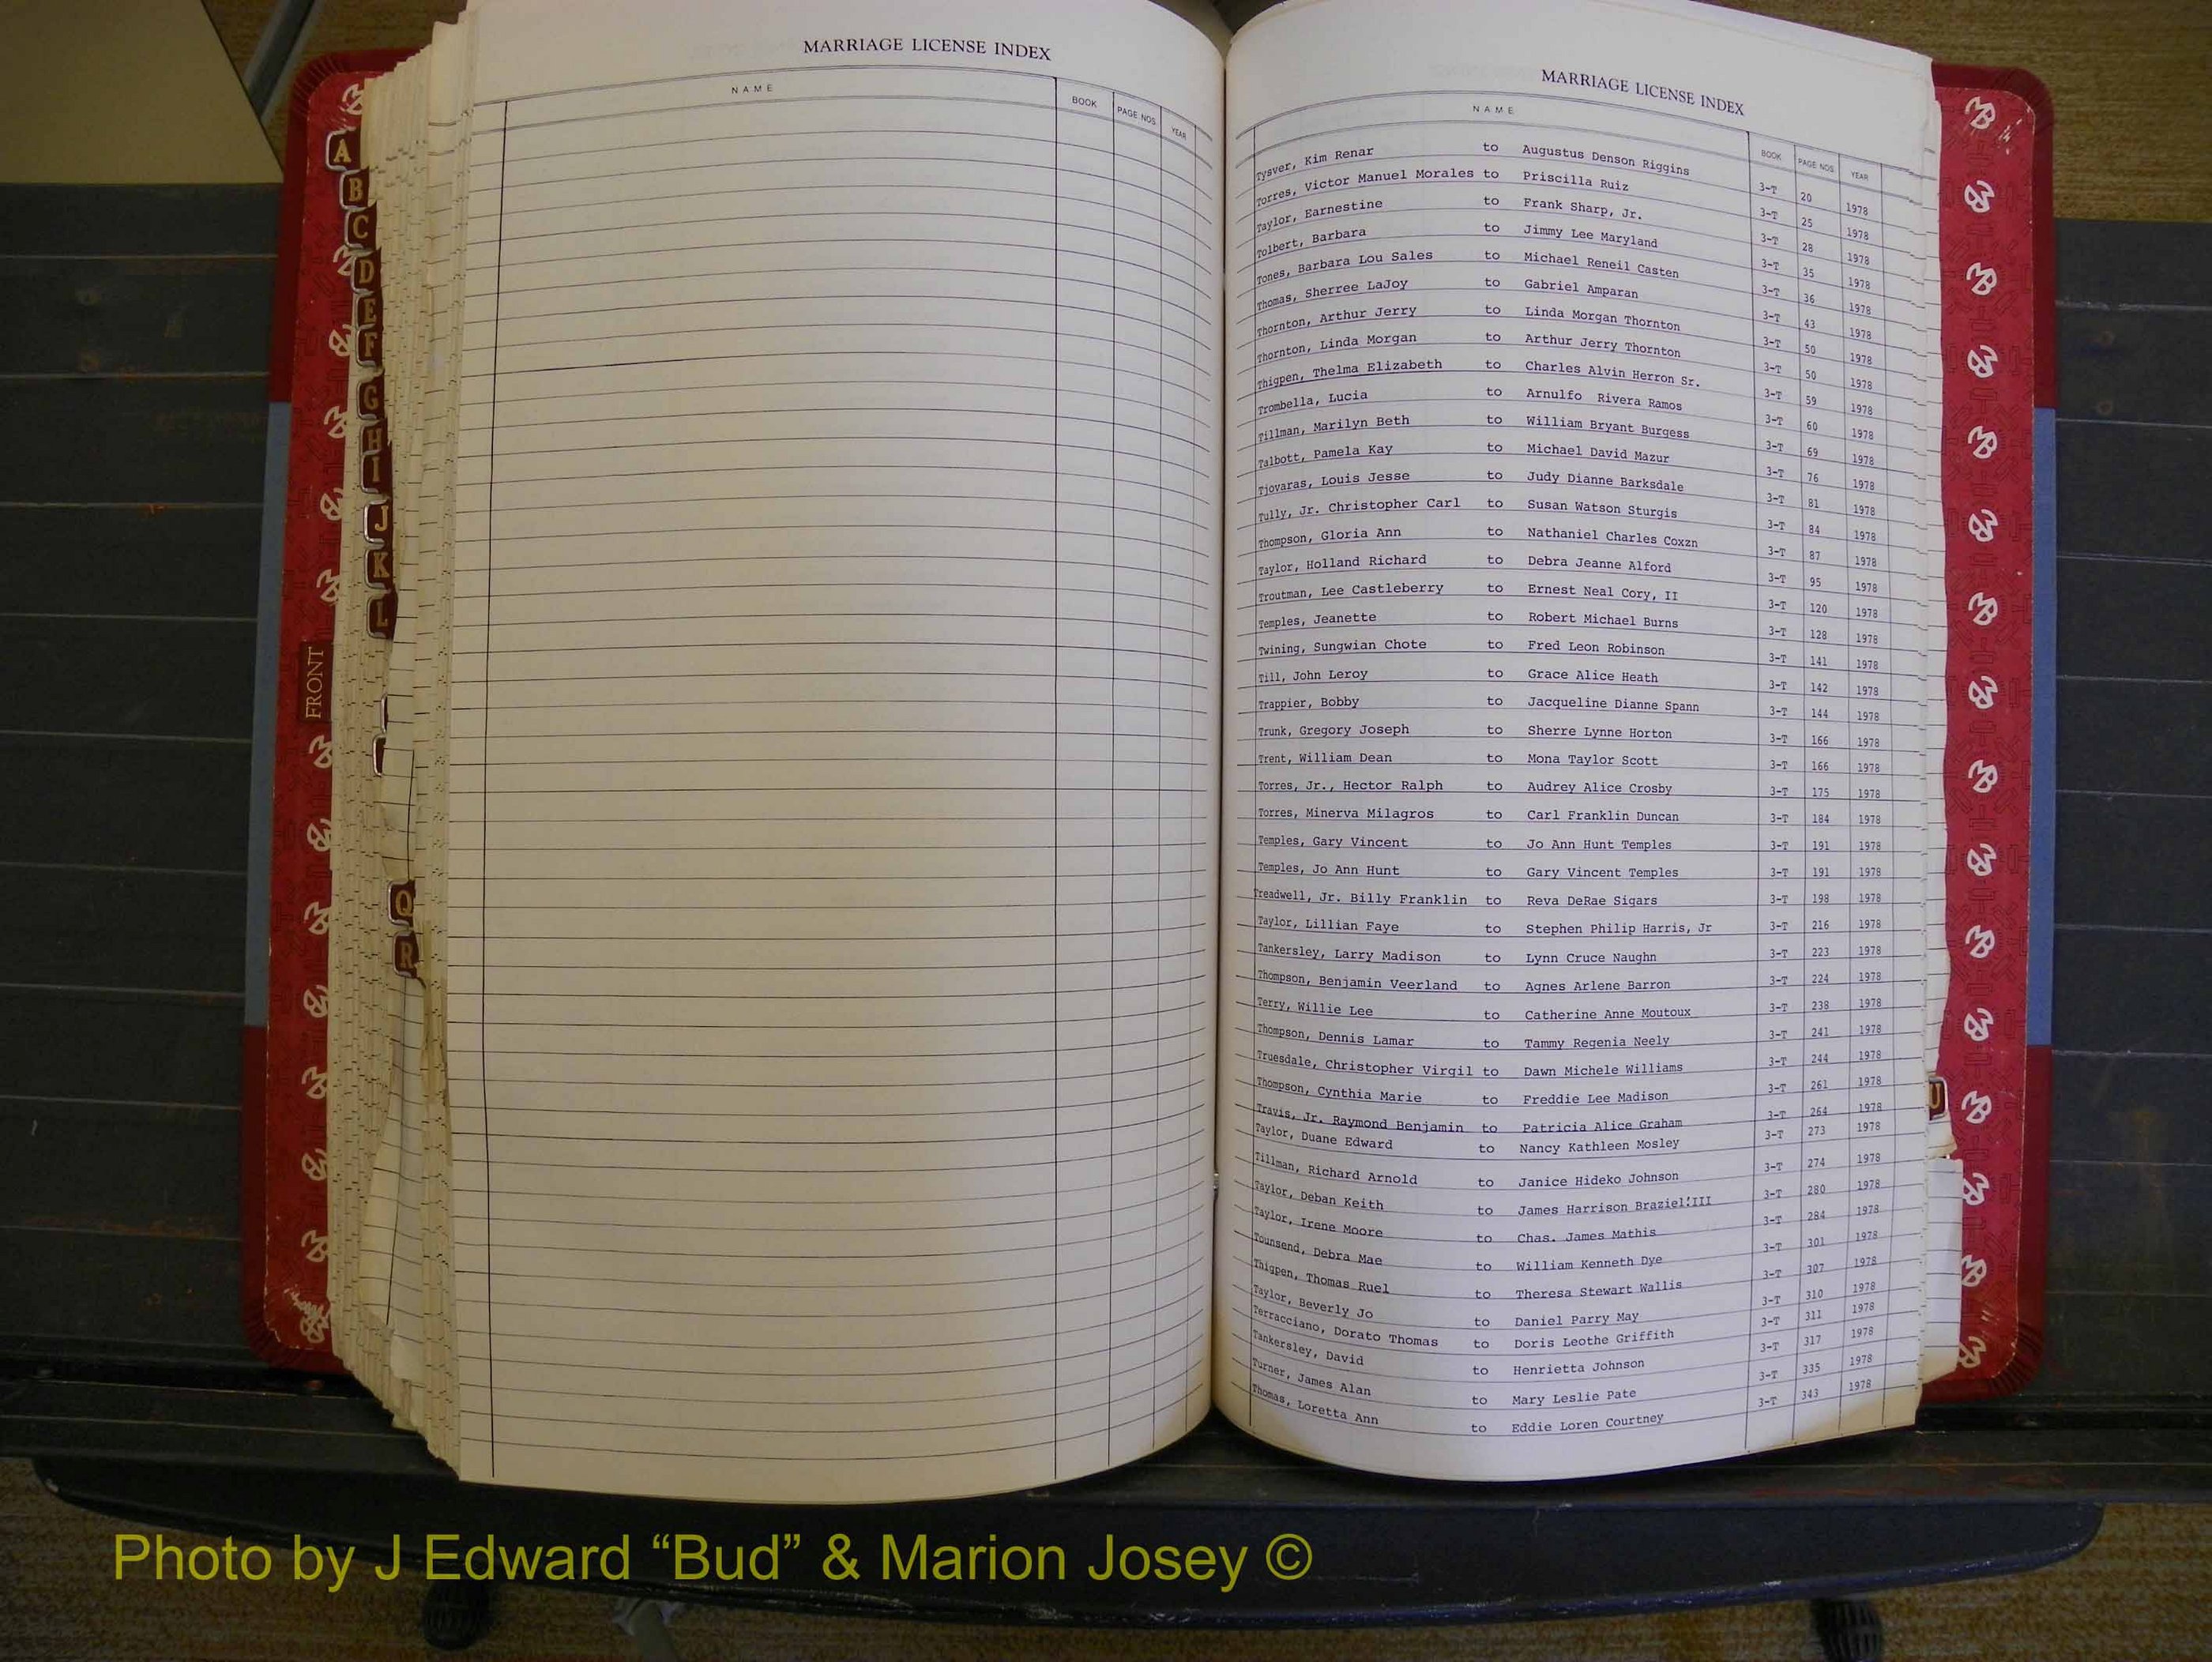 MARRIAGE LICENSE INDEX
NAME BOOK PAGE NOS. YEAR
MARRIAGE LICENSE INDEX
NAME BOOK PAGE NOS. YEAR
Tysver, Kim Renar to Augustus Denson Riggins 3-T 20 1978
Torres, Victor Manuel Morales to Priscilla Ruiz 3-T 25 1978
Taylor, Earnestine to Frank Sharp, Jr. 3-T 28 1978
Tolbert, Barbara to Jimmy Lee Maryland 3-T 35 1978
Tones, Barbara Lou Sales to Michael Reneil Casten 3-T 36 1978
Thomas, Sherree LaJoy to Gabriel Amparan 3-T 43 1978
Thornton, Arthur Jerry to Linda Morgan Thornton 3-T 50 1978
Thornton, Linda Morgan to Arthur Jerry Thornton 3-T 50 1978
Thigpen, Thelma Elizabeth to Charles Alvin Herron Sr. 3-T 59 1978
Trombella, Lucia to Arnulfo Rivera Ramos 3-T 60 1978
Tillman, Marilyn Beth to William Bryant Burgess 3-T 69 1978
Talbott, Pamela Kay to Michael David Mazur 3-T 76 1978
Tjovaras, Louis Jesse to Judy Dianne Barksdale 3-T 81 1978
Tully, Jr. Christopher Carl to Susan Watson Sturgis 3-T 84 1978
Thompson, Gloria Ann to Nathaniel Charles Coxzn 3-T 87 1978
Taylor, Holland Richard to Debra Jeanne Alford 3-T 95 1978
Troutman, Lee Castleberry to Ernest Neal Cory, II 3-T 120 1978
Temples, Jeanette to Robert Michael Burns 3-T 128 1978
Twining, Sungwian Chote to Fred Leon Robinson 3-T 141 1978
Till, John Leroy to Grace Alice Heath 3-T 142 1978
Trappier, Bobby to Jacqueline Dianne Spann 3-T 144 1978
Trunk, Gregory Joseph to Sherre Lynne Horton 3-T 166 1978
Trent, William Dean to Mona Taylor Scott 3-T 166 1978
Torres, Jr., Hector Ralph to Audrey Alice Crosby 3-T 175 1978
Torres, Minerva Milagros to Carl Franklin Duncan 3-T 184 1978
Temples, Gary Vincent to Jo Ann Hunt Temples 3-T 191 1978
Temples, Jo Ann Hunt to Gary Vincent Temples 3-T 191 1978
Treadwell, Jr. Billy Franklin to Reva DeRae Sigars 3-T 198 1978
Taylor, Lillian Faye to Stephen Philip Harris, Jr 3-T 216 1978
Tankersley, Larry Madison to Lynn Cruce Naughn 3-T 223 1978
Thompson, Benjamin Veerland to Agnes Arlene Barron 3-T 224 1978
Terry, Willie Lee to Catherine Anne Moutoux 3-T 238 1978
Thompson, Dennis Lamar to Tammy Regenia Neely 3-T 241 1978
Truesdale, Christopher Virgil to Dawn Michele Williams 3-T 244 1978
Thompson, Cynthia Marie to Freddie Lee Madison 3-T 261 1978
Travis, Jr. Raymond Benjamin to Patricia Alice Graham 3-T 264 1978
Taylor, Duane Edward to Nancy Kathleen Mosley 3-T 273 1978
Tillman, Richard Arnold to Janice Hideko Johnson 3-T 274 1978
Taylor, Deban Keith to James Harrison Braziel'III 3-T 280 1978
Taylor, Irene Moore to Chas. James Mathis 3-T 284 1978
Tounsend, Debra Mae to William Kenneth Dye 3-T 301 1978
Thigpen, Thomas Ruel to Theresa Stewart Wallis 3-T 307 1978
Taylor, Beverly Jo to Daniel Parry May 3-T 310 1978
Terracciano, Dorato Thomas to Doris Leothe Griffith 3-T 311 1978
Tankersley, David to Henrietta Johnson 3-T 317 1978
Turner, James Alan to Mary Leslie Pate 3-T 335 1978
Thomas, Loretta Ann to Eddie Loren Courtney 3-T 343 1978
A
B
C
D
E
F
G
H
I
J
K
L
FRONT
Q
R
U
Photo by J Edward “Bud” & Marion Josey ©